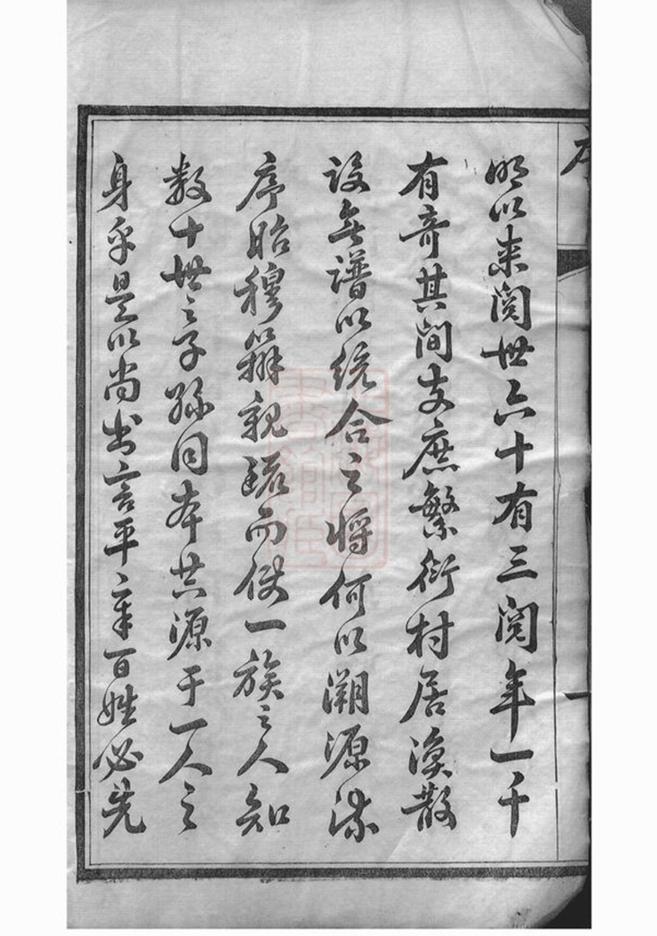 序
一
明以来閲世六十有三閲年一千
有奇其間支庶繁衍村居渙散
设無谱以统合之将何以溯源流
序昭穆辨親疏而使一族之人知
数十世之子孫同本共源于一人之
身乎是以尚书言平章百姓必先